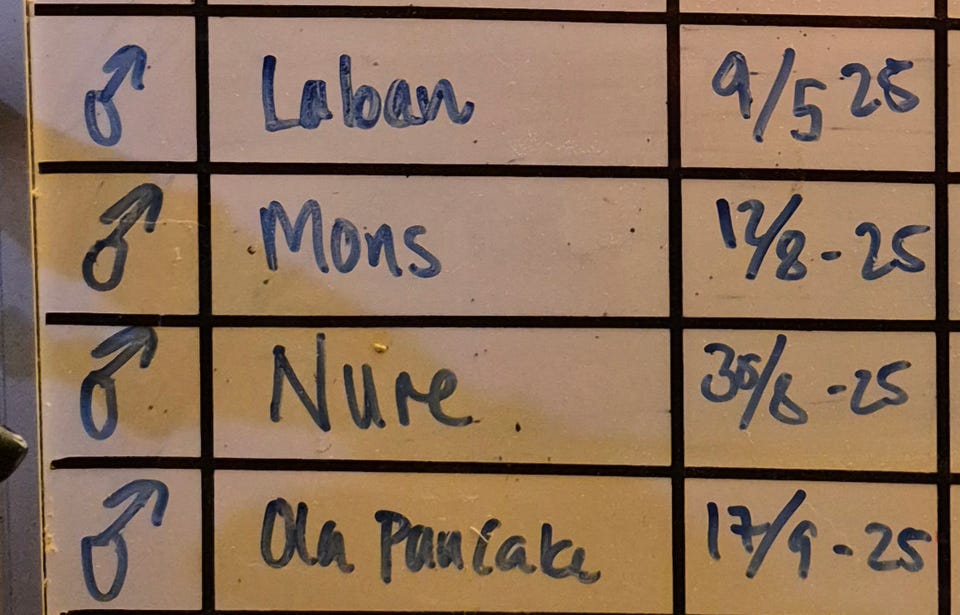 ♂ Laban 9/5 25
♂ Mons 12/8 - 25
♂ Nure 30/8 - 25
♂ Ola Pancake 17/9 - 25